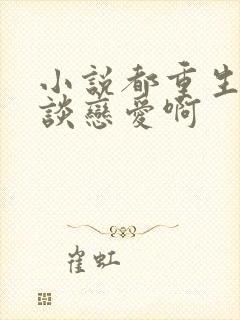 小説都重生
談戀愛啊
崔虹